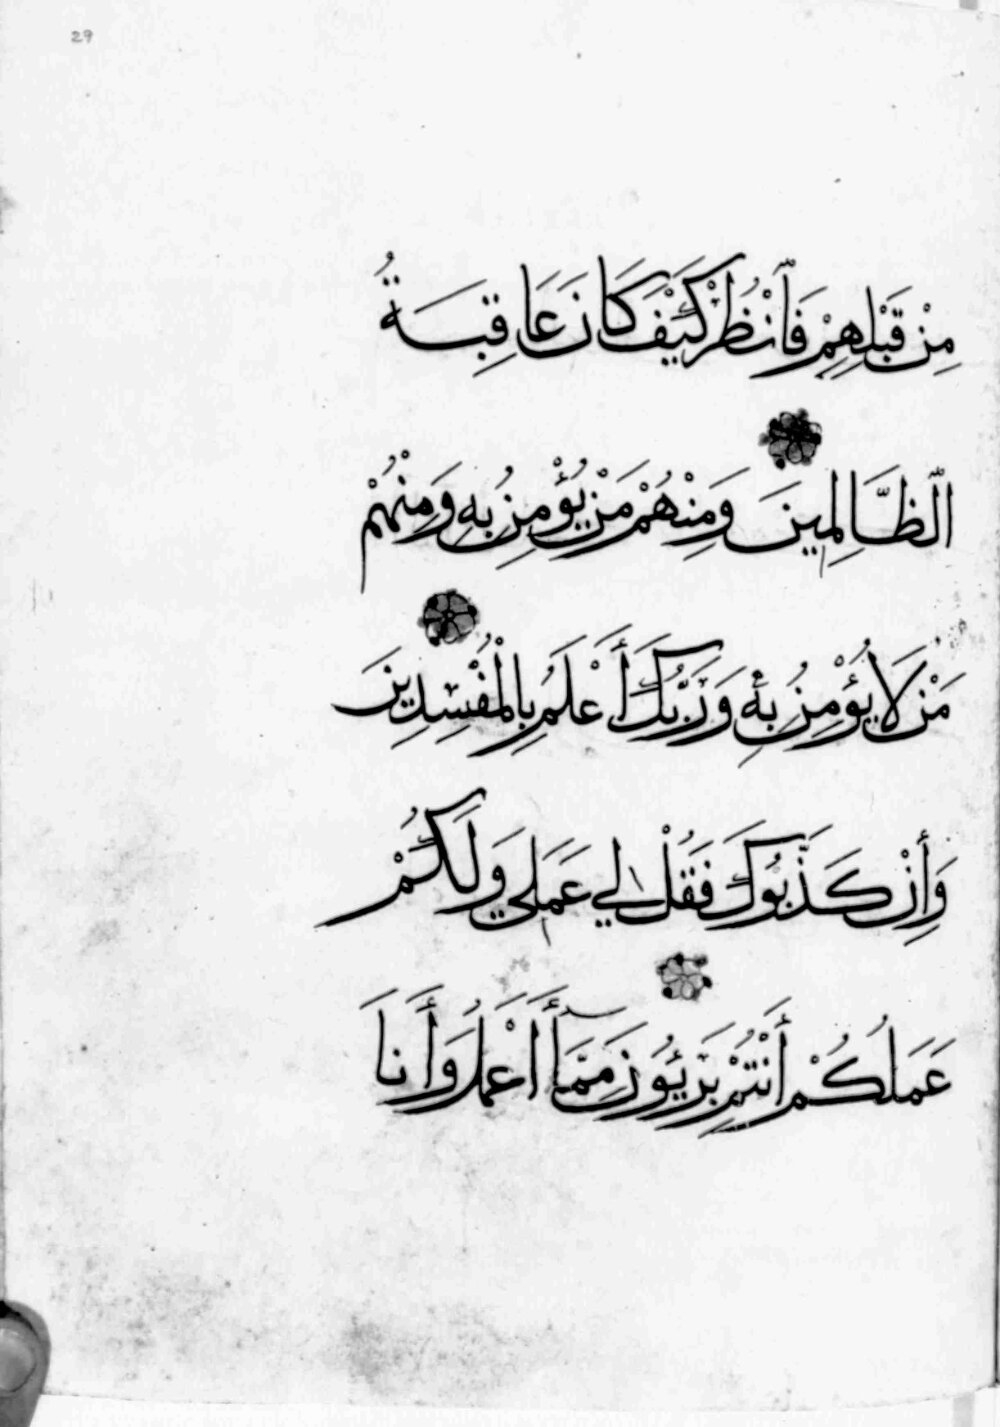 29
مِنْ قَبْلِهِمْ فَٱنْظُرْ كَيْفَ كَانَ عَاقِبَةُ
ٱلظَّالِمِينَ وَمِنْهُمْ مَنْ يُؤْمِنُ بِهِ وَمِنْهُمْ
مَنْ لَا يُؤْمِنُ بِهِ وَرَبُّكَ أَعْلَمُ بِالْمُفْسِدِينَ
وَإِنْ كَذَّبُوكَ فَقُلْ لِي عَمَلِي وَلَكُمْ
عَمَلُكُمْ أَنْتُمْ بَرِئُونَ مِمَّآ أَعْمَلُ وَأَنَا